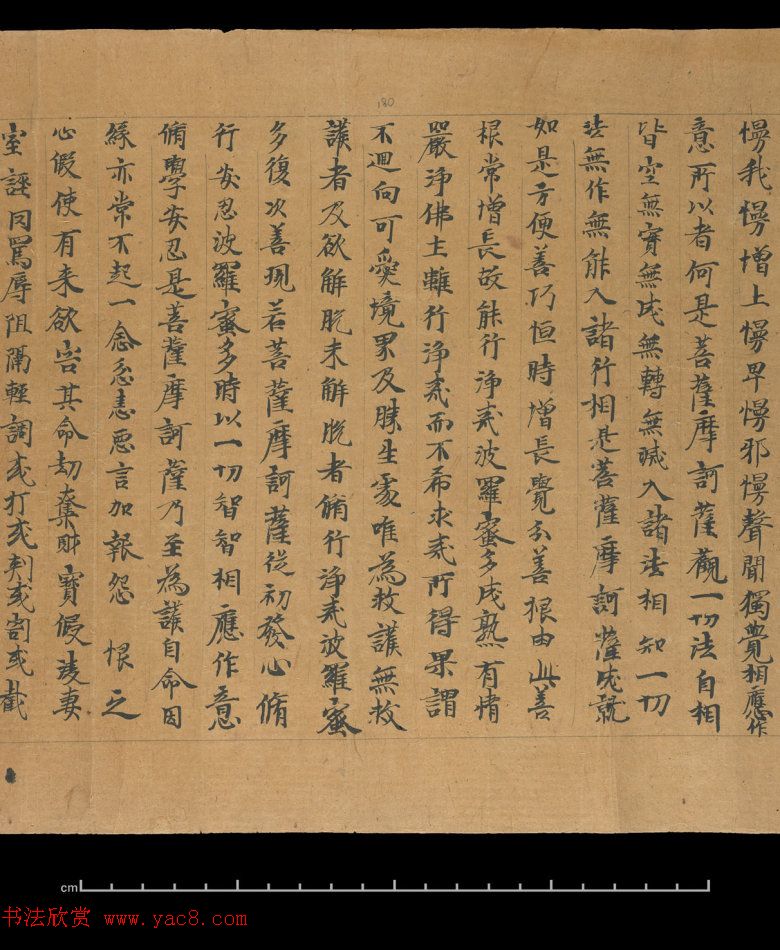 180
慢我慢增上慢卑慢邪慢聲聞獨覺相應作
意所以者何是菩薩摩訶薩觀一切法自相
皆空無實無成無轉無滅入諸法相知一切
法無作無能入諸行相是菩薩摩訶薩成就
如是方便善巧恒時增長覺分善根由此善
根常增長故能行淨戒波羅蜜多成熟有情
嚴淨佛土雖行淨戒而不希求戒所得果謂
不迴向可愛境界及勝生處唯為救護無救
護者及欲解脫未解脫者脩行淨戒波羅蜜
多復次善現若菩薩摩訶薩從初發心脩
行安忍波羅蜜多時以一切智智相應作意
脩學安忍是菩薩摩訶薩乃至為護自命因
緣亦常不起一念忿恚惡言加報怨恨之
心假使有来欲害其命劫奪財寶假淩妻
室誣罔罵辱阻隔輕調或打或刺或割或截
cm
书法欣赏 www.yac8.com